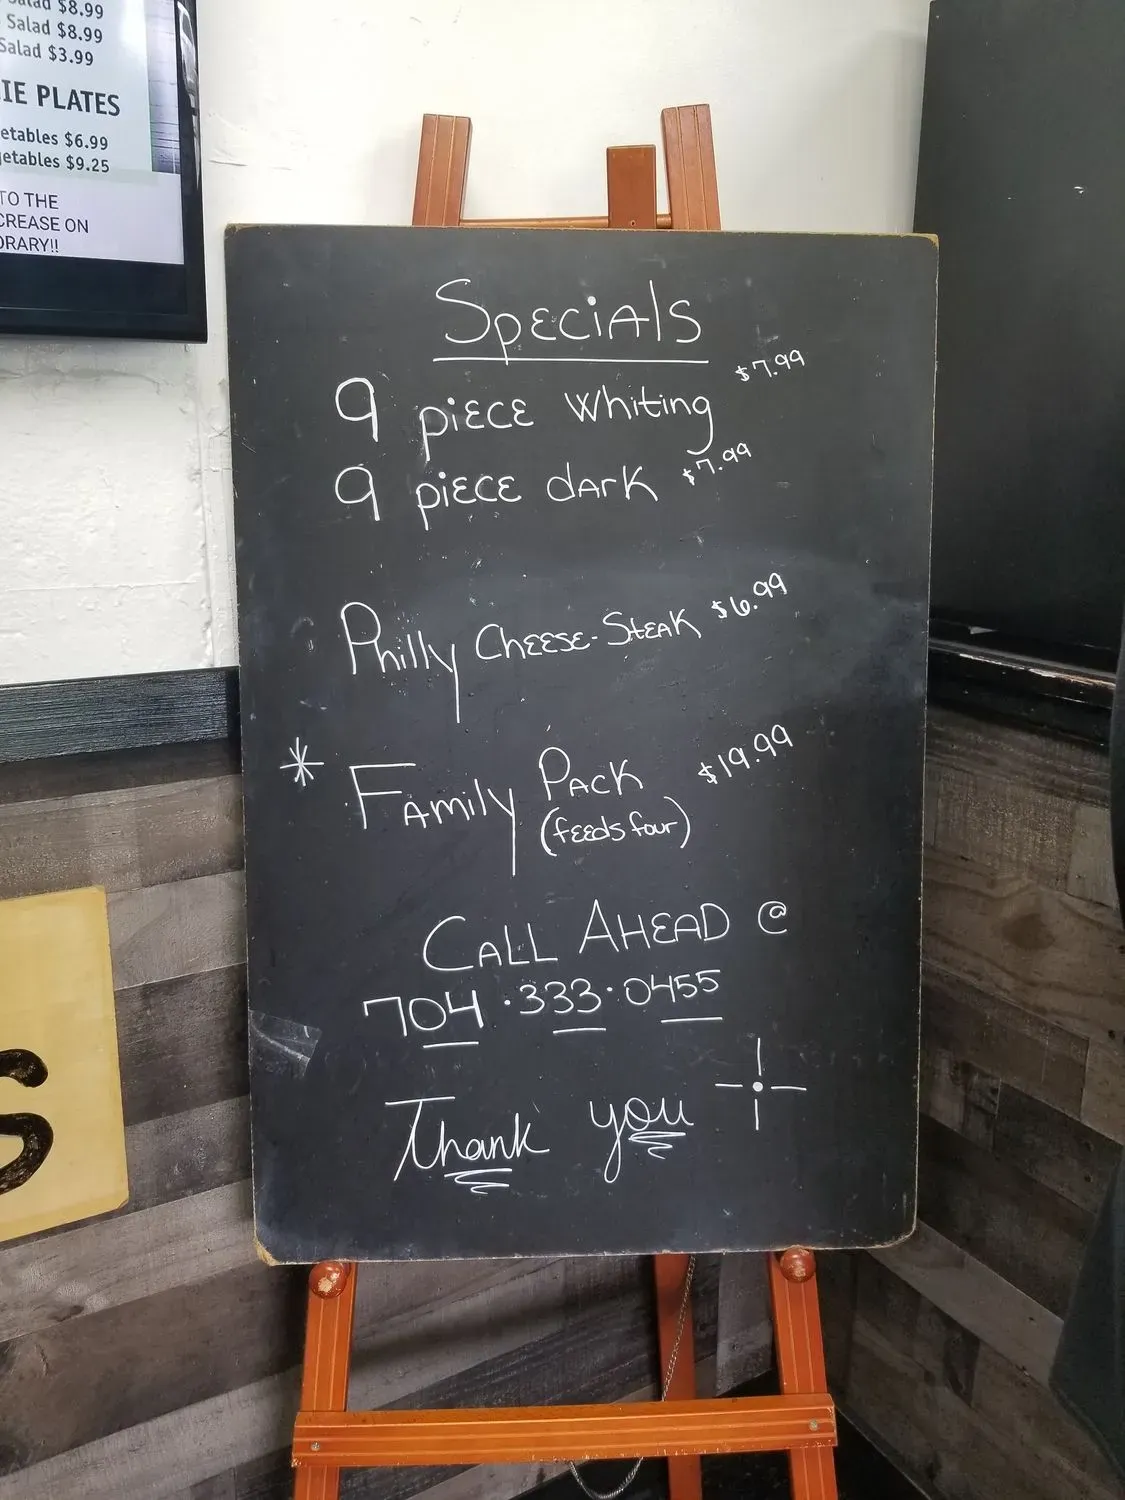 Salad $8.99
Salad $8.99
Salad $3.99
PLATES
$6.99
$9.25
TO THE
ON
Specials
9 piece Whiting $7.99
9 piece dark $7.99
Philly Cheese-Steak $6.99
* Family Pack $19.99
(feeds four)
Call Ahead @
704·333·0455
Thank you